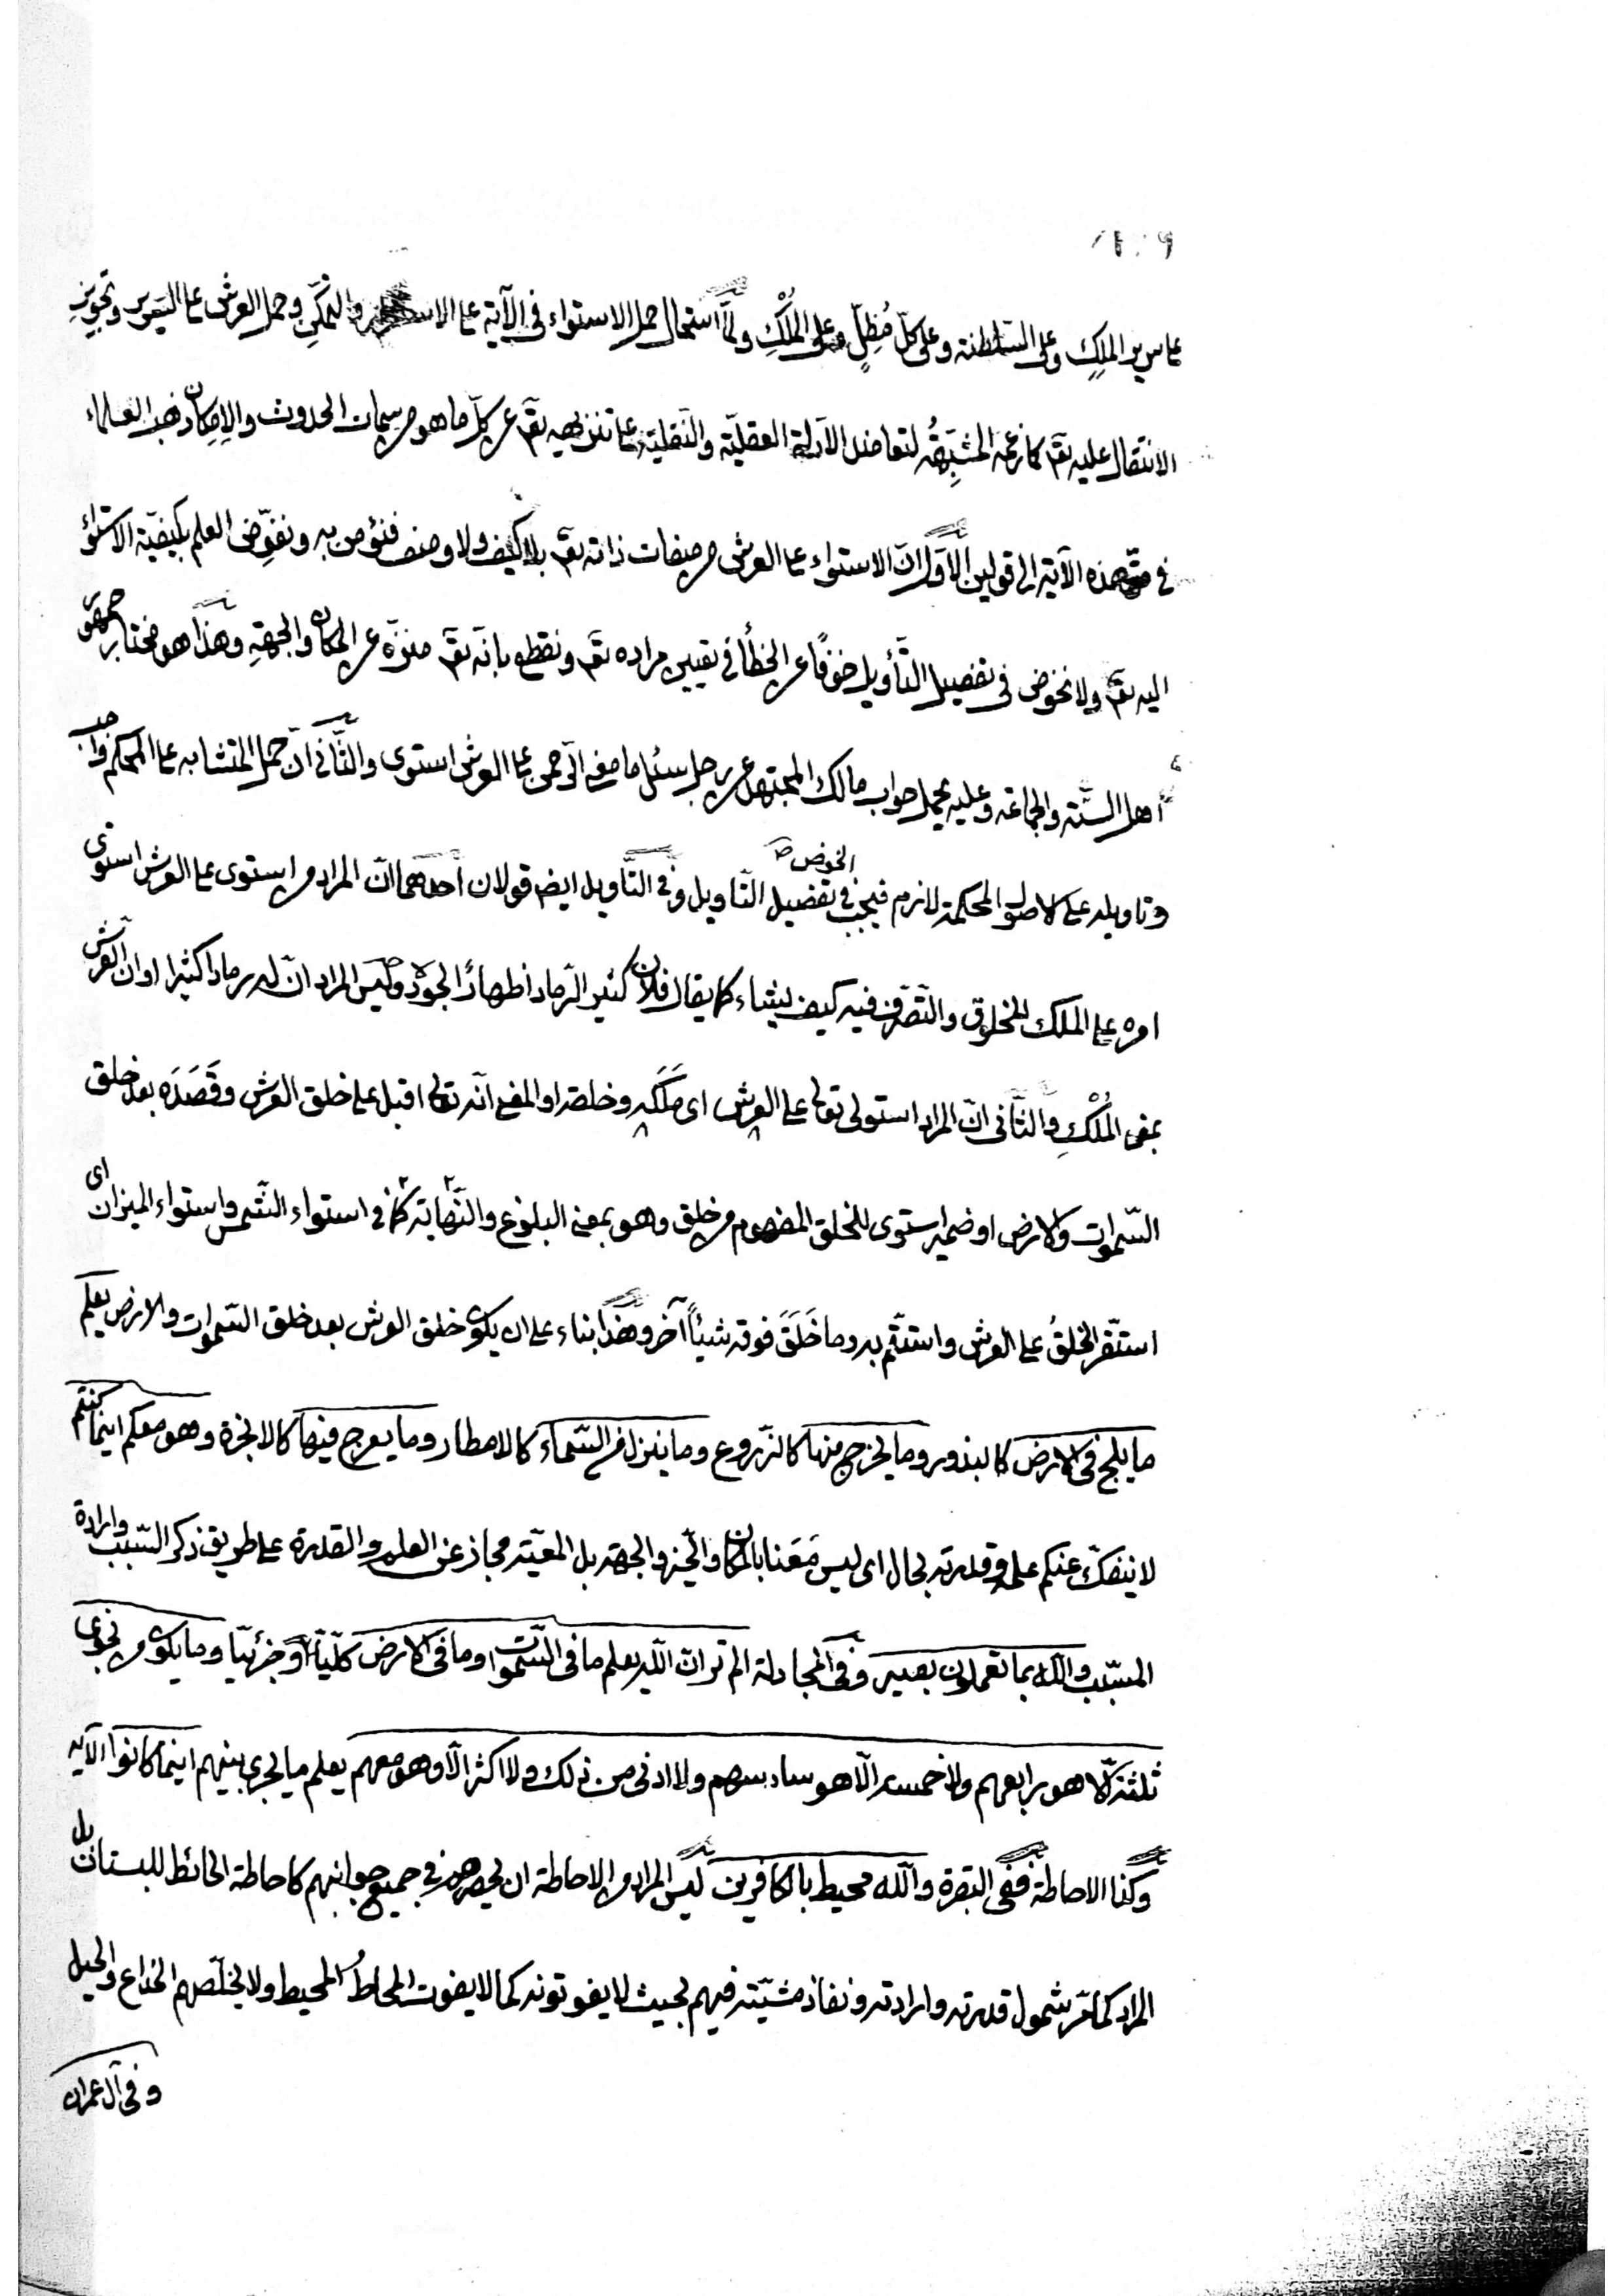 على سرير الملِك وعلى السلطنة وعلى كلّ مُظِلٍّ وعلى المُلْكِ ولمّا استحال حمل الاستواء فى الآية على الاستقرار والتمكّنِ وحمل العرش على السّرير وتجويزِ
الانتقال عليه تعَ كما زعمه المُشَبِّهَةُ لتعاضد الادلّة العقليّة والنّقليّة على تنزيهه تعَ عن كلّ ما هو من سمات الحدوث والاِمكان ذهب العلماء
فى هذه الآية الى قولين الاَوّل انّ الاستواء على العرش من صفات ذاته تعَ بلا كيف ولا وصف فنؤمن به ونفوّض العلم بكيفيّة الاستواء
اليه تعَ ولا نخوض فى تفصيل التّأويل خوفًا عن الخطأ فى تعيين مراده تعَ ونقطع بانّه تعَ منزّه عن المكان والجهةِ وهذا هو مختار جمهور
أهل السّنة والجماعة وعليه يحمل جواب مالك المجتهد عن رجل سئل ما معنى الرّحمن على العرش استوى والثّانى انّ حمل المتشابه على المحكم واجب
وتاويله على الاصول المحكمة لازم فيجب الخوض صح فى تفصيل التّاويل وفى التّاويل ايضا قولان احدهما انّ المراد من استوى على العرش استوى
امره على الملك المخلوق والتّصرّف فيه كيف يشاء كما يقال فلان كثير الرّماد اظهارًا لجوده وليس المراد انّ له رمادا كثيرا او ان العرش
بمعنى المُلْكِ والثّانى انّ المراد استولى تعالى على العرش اى مَلَكَه وخلقه او المعنى انّه تعالى اقبل على خلق العرش وقَصَدَه بعد خلق
السّموات والارض او ضمير استوى للخلق المفهوم من خلق وهو بمعنى البلوغ والنّهاية كما فى استواء الشّمس واستواء الميزان اى
استقّر الخلقُ على العرش واستتّم به وما خَلَقَ فوقه شيئاً آخر وهذا بناء على ان يكون خلق العرش بعد خلق السّموات والارض يعلم
ما يلج فى الارض كالبذور وما يخرج منها كالزّروع وما ينزل من السّماء كالامطار وما يعرج فيها كالابخرة وهو معكم اينما كنتم
لا ينفكّ عنكم علمه وقدرته بحال اى ليس مَعَنا بالمكان والحيّز والجهة بل المعيّة مجاز عن العلم والقدرة على طريق ذكر السّبب وارادة
المسبّب والله بما تعملون بصير وفى المجادلة الم تر انّ اللّه يعلم ما فى السّموات وما فى الارض كلّيّاً او جزئيّا وما يكون من نجوى
ثلثة الّا هو رابعهم ولا خمسة الّا هو سادسهم ولا ادنى من ذلك ولا اكثر الّا وهو معهم يعلم ما يجرى بينهم اينما كانوا الآية
وكذا الاحاطة ففى البقرة والله محيط بالكافرين ليس المراد من الاحاطة ان يحصرهم فى جميع جوانبهم كاحاطة الحائط للبستان بل
المراد كما مرّ شمول قدرته وارادته ونفاذ مشيّته فيهم بحيث لا يفوتونه كما لا يفوت المحاطُ المحيط ولا يخلّصهم الخداع والحيل
وفى آل عمران